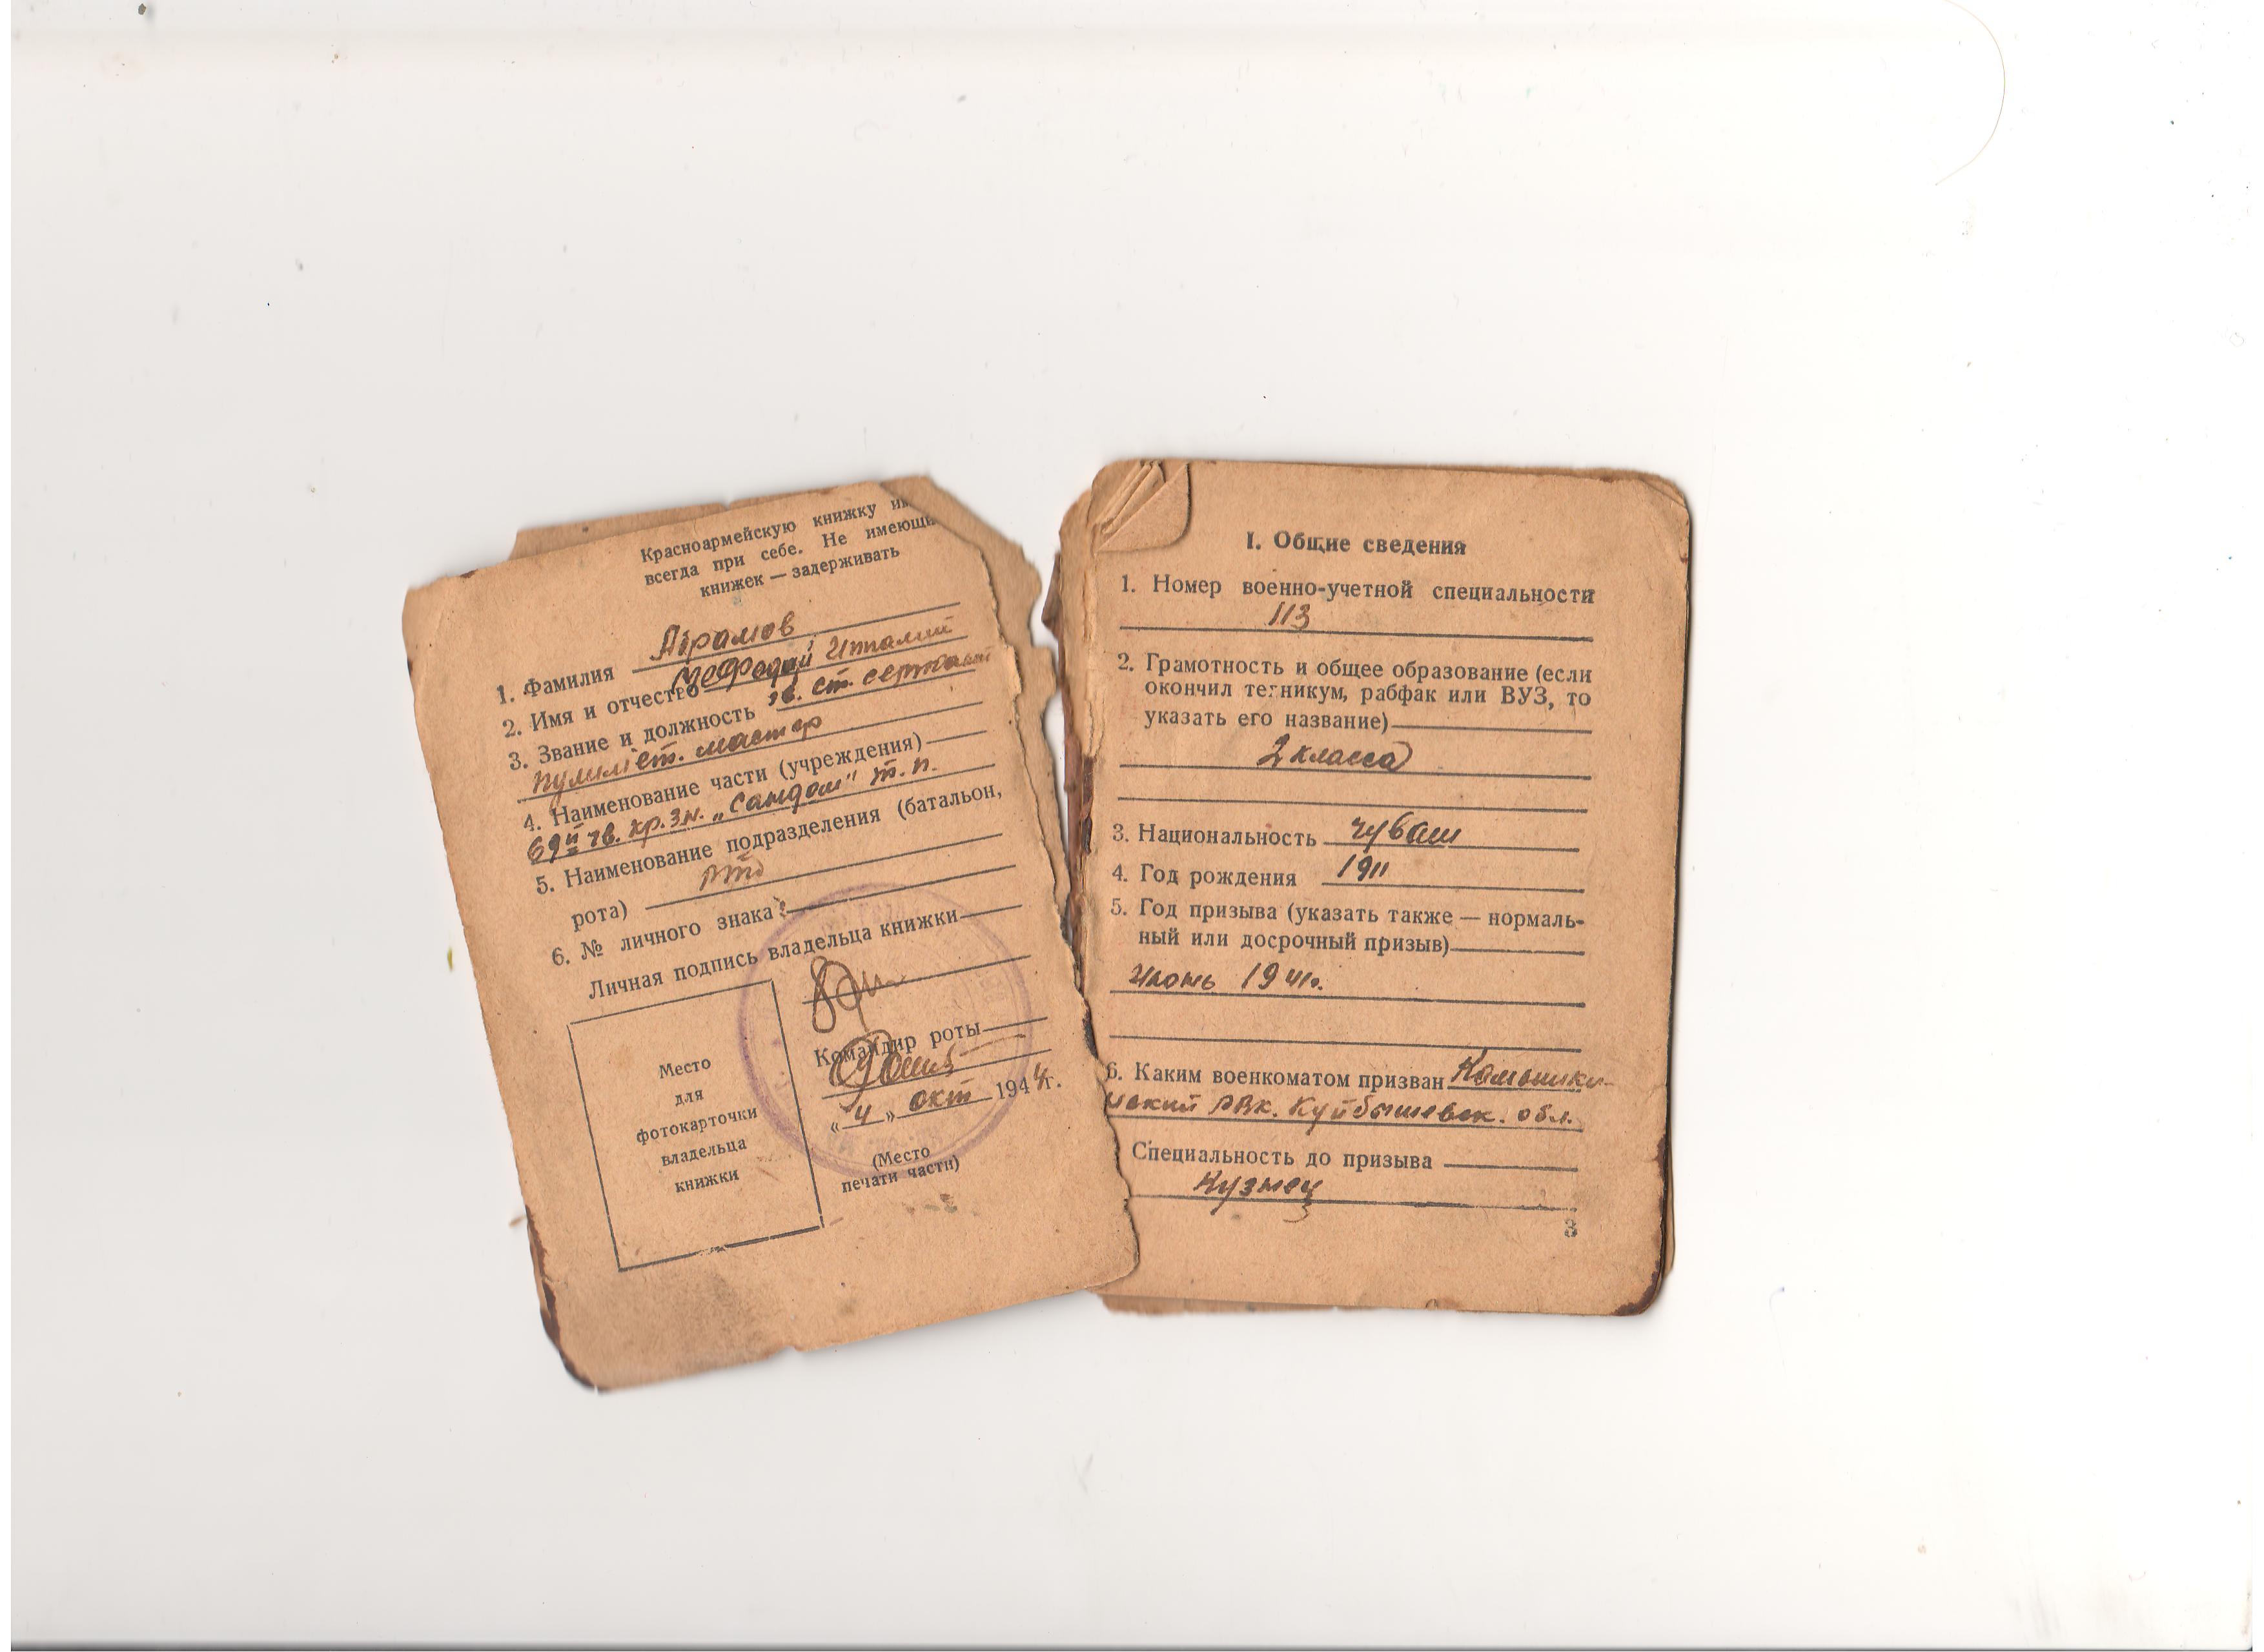 Красноармейскую книжку
всегда при себе. Не имеющи
книжек — задерживать
1. Фамилия Абрамов
2. Имя и отчество Мефодий
3. Звание и должность гв. ст. сержант
пулемёт. мастер
4. Наименование части (учреждения)
69й гв. кр. зн. „Сандом" т. п.
5. Наименование подразделения (батальон,
рота)
6. № личного знака
Личная подпись владельца книжки
Командир роты
«4» окт 1944г.
(Место
печати части)
Место
для
фотокарточки
владельца
книжки
I. Общие сведения
1. Номер военно-учетной специальности
113
2. Грамотность и общее образование (если
окончил техникум, рабфак или ВУЗ, то
указать его название)
2 класса
3. Национальность чуваш
4. Год рождения 1911
5. Год призыва (указать также — нормаль-
ный или досрочный призыв)
1941г.
6. Каким военкоматом призван
РВк. Куйбышевск. обл.
Специальность до призыва
Кузнец
3